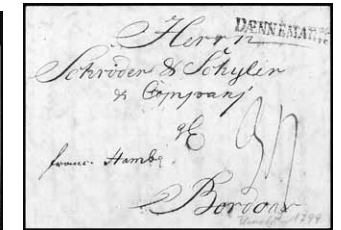 DÆNNEMARK
Herrn
Schröder & Schyler
& Company
franc. Hambg.
Bordoax
1799